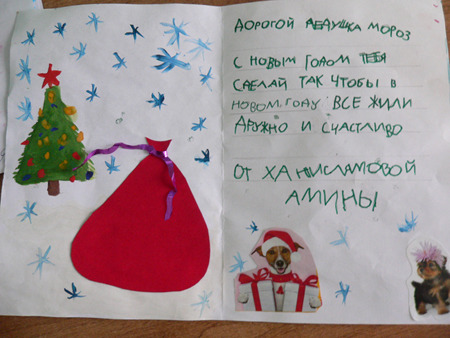 ДОРОГОЙ ДЕДУШКА МОРОЗ
С НОВЫМ ГОДОМ ТЕБЯ
СДЕЛАЙ ТАК ЧТОБЫ В
НОВОМ ГОДУ ВСЕ ЖИЛИ
ДРУЖНО И СЧАСТЛИВО
ОТ ХАНИСЛАМОВОЙ
АМИНЫ